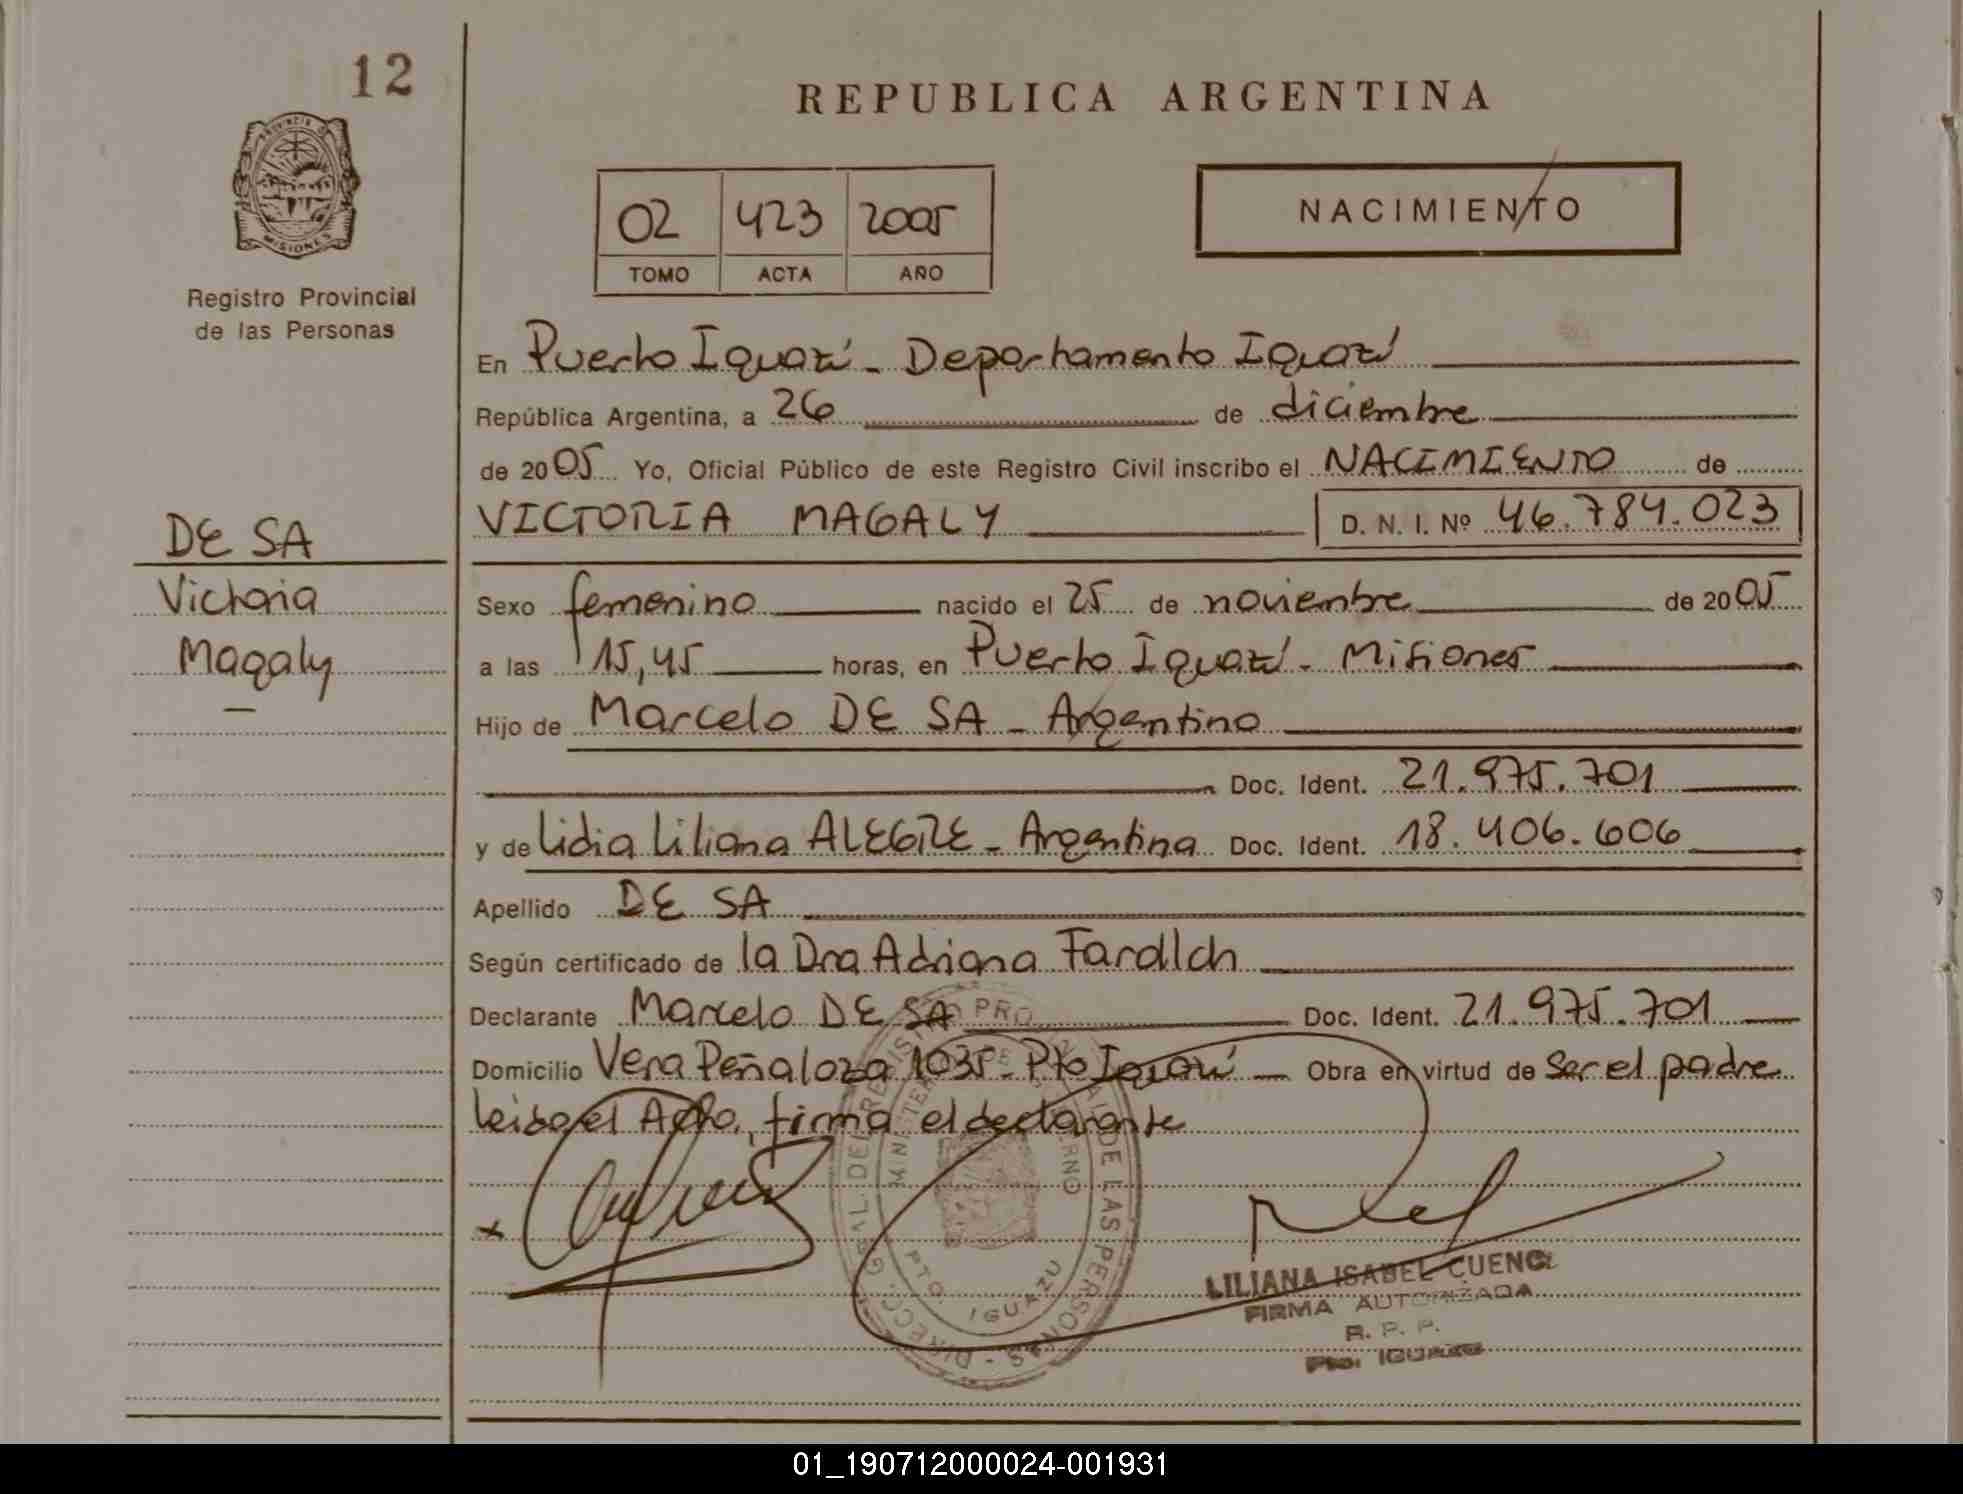 12
REPUBLICA ARGENTINA
PROVINCIA DE
MISIONES
Registro Provincial
de las Personas
02 423 2005
TOMO ACTA AÑO
NACIMIENTO
En Puerto Iguazú - Departamento Iguazú
República Argentina, a 26 de diciembre
de 2005 Yo, Oficial Público de este Registro Civil inscribo el NACIMIENTO de
VICTORIA MAGALY D. N. I. Nº 46.784.023
DE SA
Victoria
Magaly
Sexo femenino nacido el 25 de noviembre de 2005
a las 15,45 horas, en Puerto Iguazú - Misiones
Hijo de Marcelo DE SA - Argentino
Doc. Ident. 21.975.701
y de Lidia Liliana ALEGRE - Argentina Doc. Ident. 18.406.606
Apellido DE SA
Según certificado de la Dra Adriana
Declarante Marcelo DE SA Doc. Ident. 21.975.701
Domicilio Vera Peñaloza 1035 - Pto Iguazú - Obra en virtud de ser el padre
leido el Acta, firma el declarante
x
PTO. IGUAZU
LILIANA ISABEL CUENCA
FIRMA AUTORIZADA
R. P. P.
Pto. IGUAZU
01_190712000024-001931